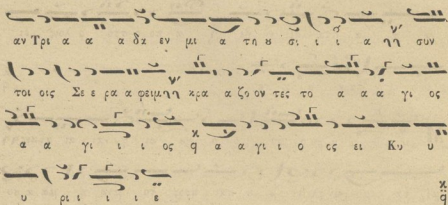 αν Τρι α α α δα εν μι α τη ου σι ι ι α ηη συν
τοι οις Σε ε ρα α φειμ ηη κρα α ζο ον τες το α α α γι ος
α α α γι ι ι ος q α α γι ι ο ος ει Κυ υ
υ ρι ι ι ι ε